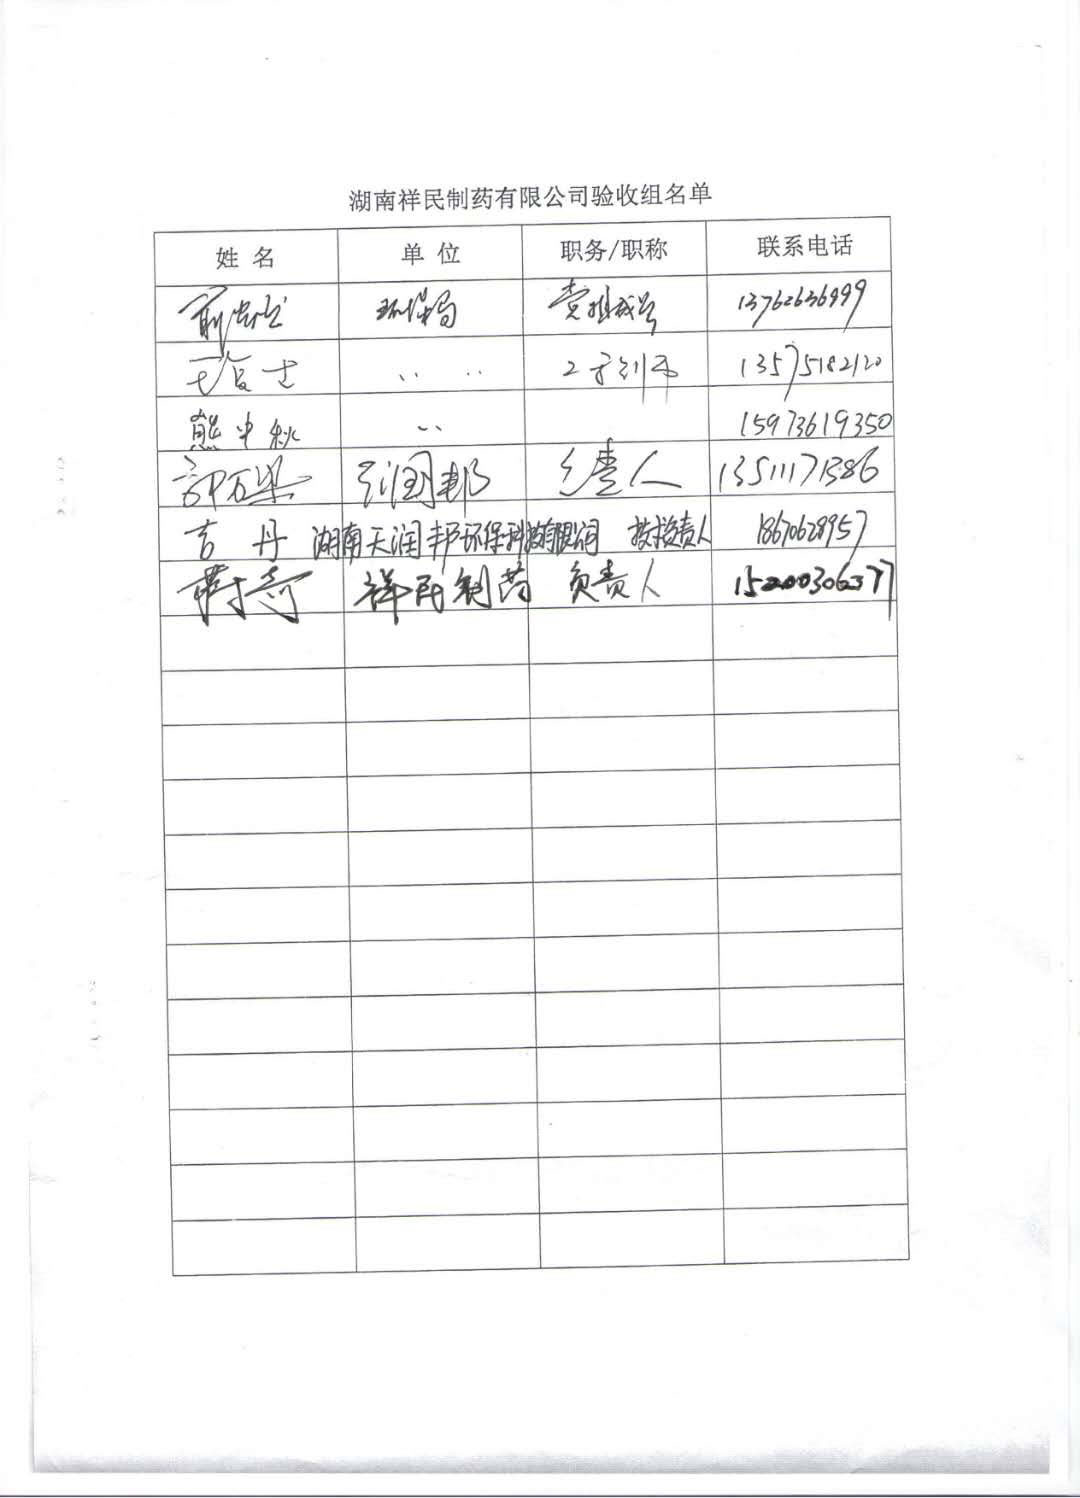 湖南祥民制药有限公司验收组名单
姓名 单位 职务/职称 联系电话
环保局 党组成员 13762636999
13575182120
熊中秋 15973619350
润邦 负责人 13511171386
吉丹 湖南天润邦环保科技有限公司 技术负责人 18670628957
祥民制药 负责人 15200306377